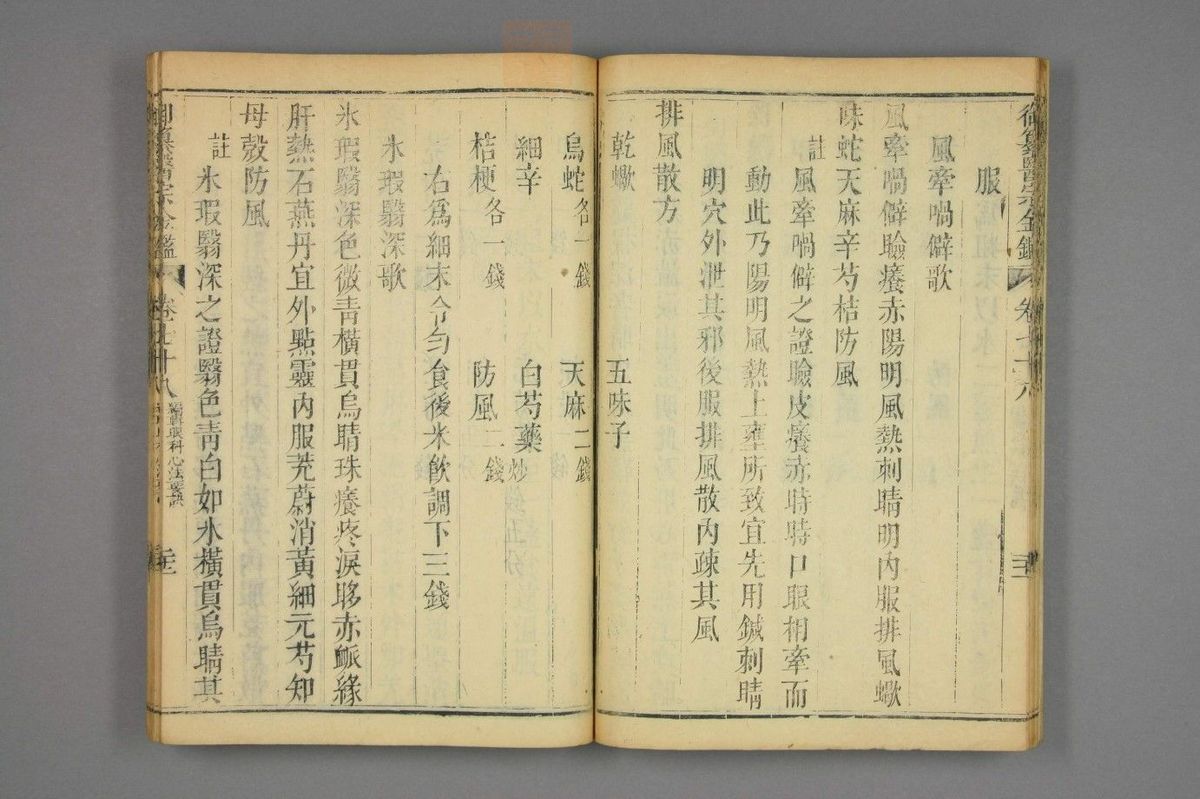 御纂醫宗金鑑 卷七十八
服
風牽喎僻歌
風牽喎僻瞼癢赤陽明風熱刺睛明內服排風蠍
味蛇天麻辛芍桔防風
註 風牽喎僻之證瞼皮癢赤時時口眼相牽而
動此乃陽明風熱上壅所致宜先用鍼刺睛
明穴外泄其邪後服排風散內疎其風
排風散方
乾蠍 五味子
烏蛇各一錢 天麻二錢
細辛 白芍藥炒 錢五分
桔梗各一錢 防風二錢
右爲細末令勻食後米飲調下三錢
氷瑕翳深歌
氷瑕翳深色微靑橫貫烏睛珠癢疼淚眵赤脈緣
肝熱石燕丹宜外點靈內服茺蔚消黃細元芍知
母殼防風
註 氷瑕翳深之證翳色靑白如氷橫貫烏睛其
御纂醫宗金鑑 卷七十八 編輯眼科心法要訣